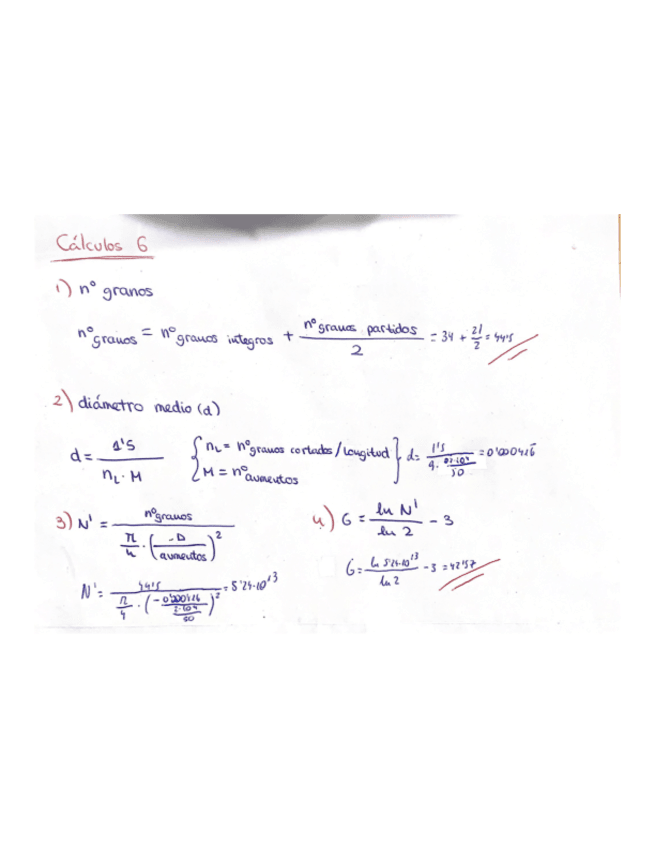 Cálculos 6
1) nº granos
nº granos = nº granos integros + nº granos partidos / 2 = 34 + 21/2 = 44'5
2) diámetro medio (d)
d = 1'5 / nL · M { nL = nº granos cortados/longitud M = nº aumentos } d =
3) N' = nº granos / π/4 · (D / aumentos)²
4) G = ln N' / ln 2 - 3
N' = 44'5 / π/4 = 5'24·10¹³
G = ln 5'24·10¹³ / ln 2 - 3 = 42'57